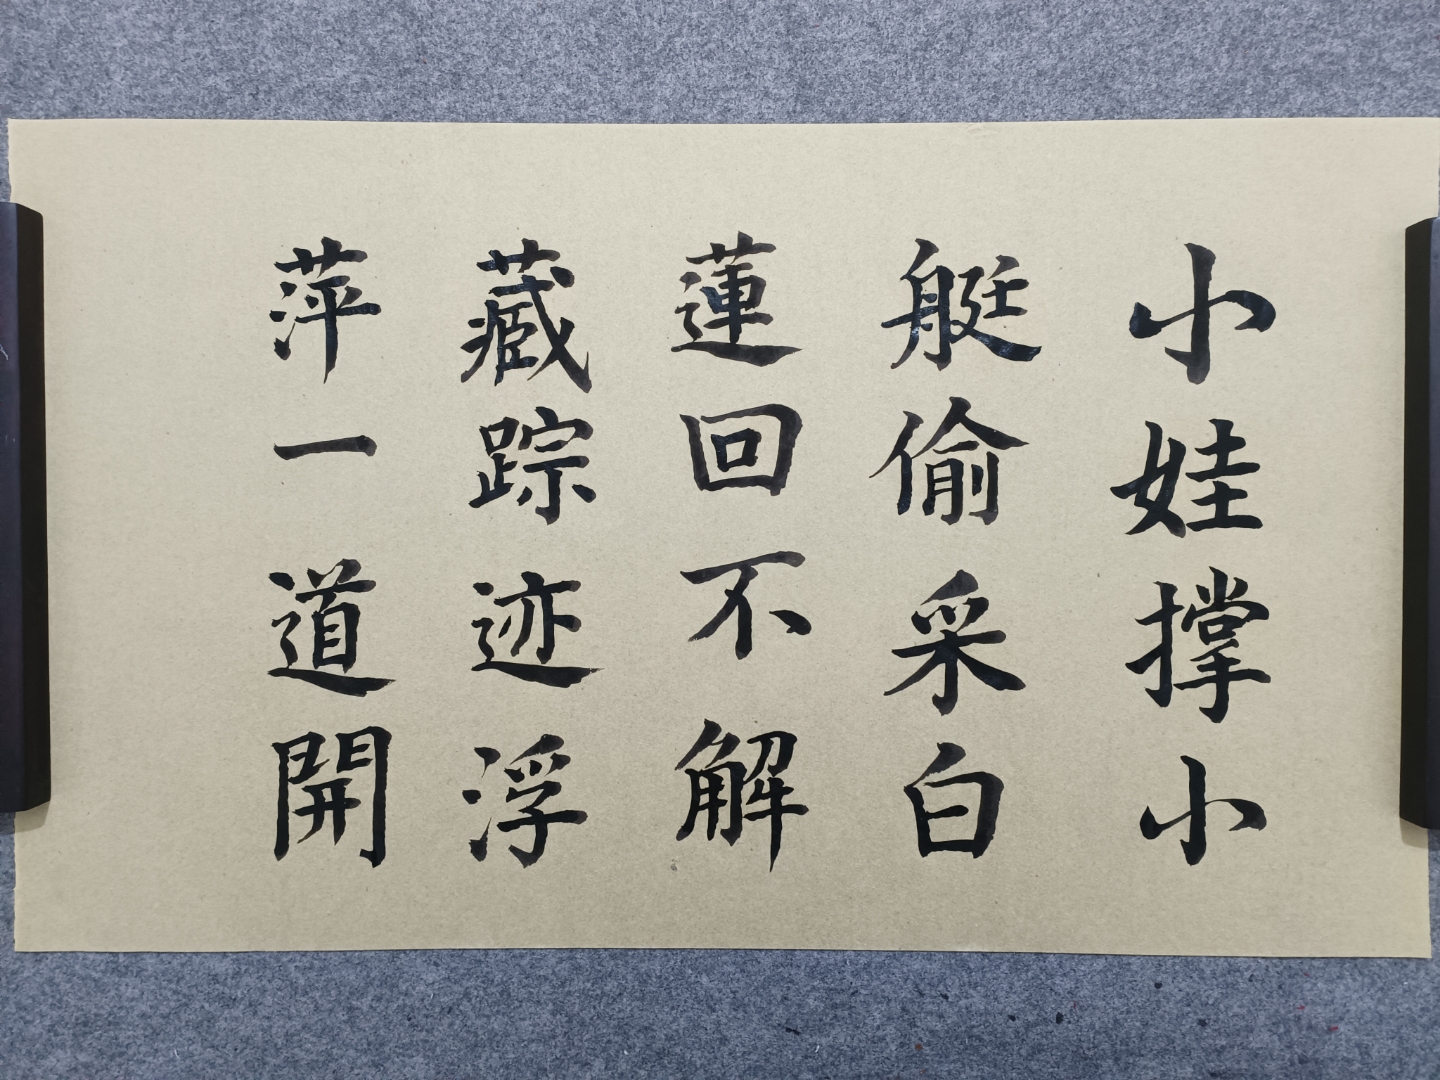 小娃撑小
艇偷采白
蓮回不解
藏踪迹浮
萍一道開